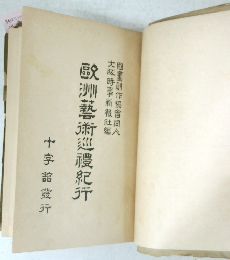 國畫創作協會同人
大阪時事新報社編
歐洲藝術巡禮紀行
十字館發行